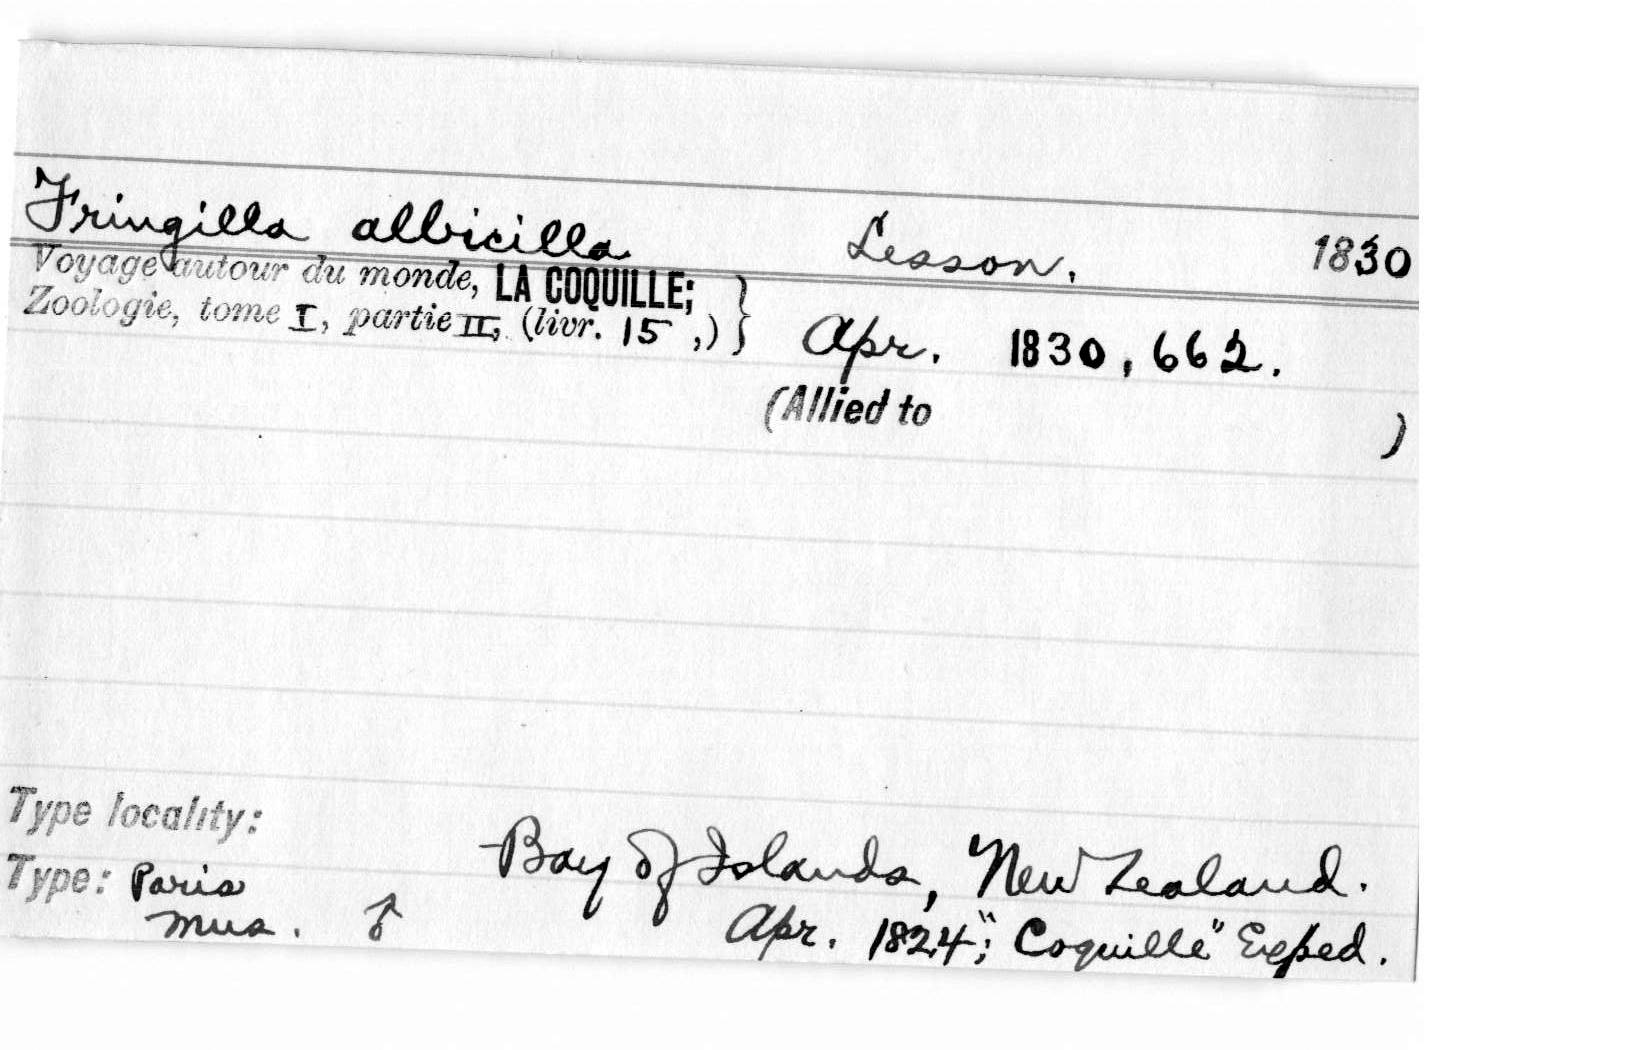 Fringilla albicilla Lesson, 1830
Voyage autour du monde, LA COQUILLE;
Zoologie, tome I, partie II, (livr. 15 ,) } Apr. 1830, 662.
(Allied to )
Type locality:
Bay of Islands, New Zealand.
Type: Paris
Mus. ♂ Apr. 1824; "Coquille" Exped.